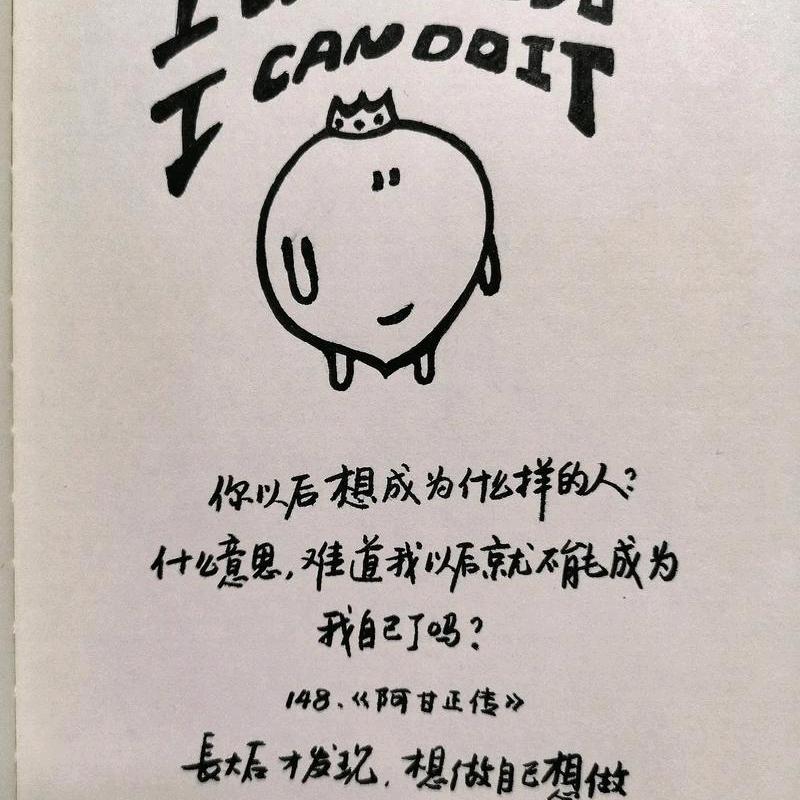 I CAN DO IT
你以后想成为什么样的人?
什么意思,难道我以后就不能成为
我自己了吗?
148.《阿甘正传》
長大后才发现,想做自己想做